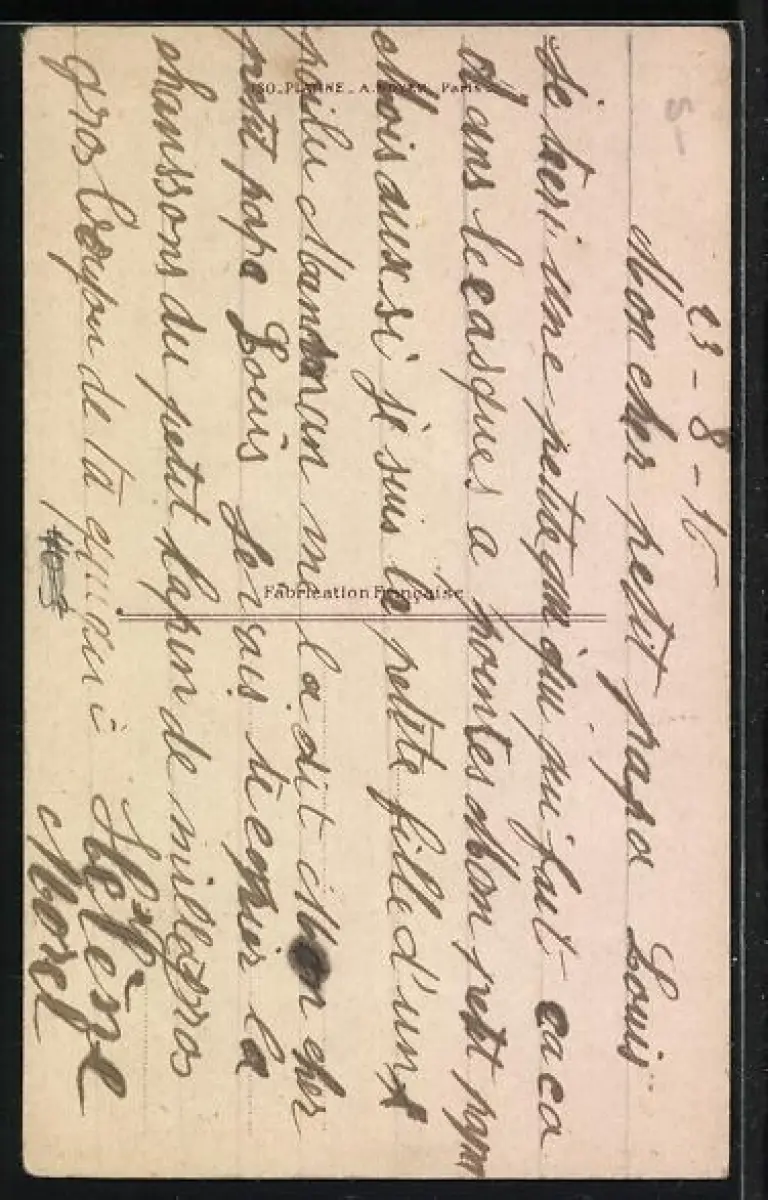 23-8-15
Mon cher petit papa Louis
Je une petite qui fait caca
dans le casques a pointes Mon petit papa
Mois aussi je suis le petite fille d'un
poilu Mamman me la dit Mon cher
petit papa Louis Je vais la
chanssons du petit lapin de mille gros
gros de ta
Hélène
Morel
ISO-PLANNE - A. NOYER - Paris
Fabrication Française